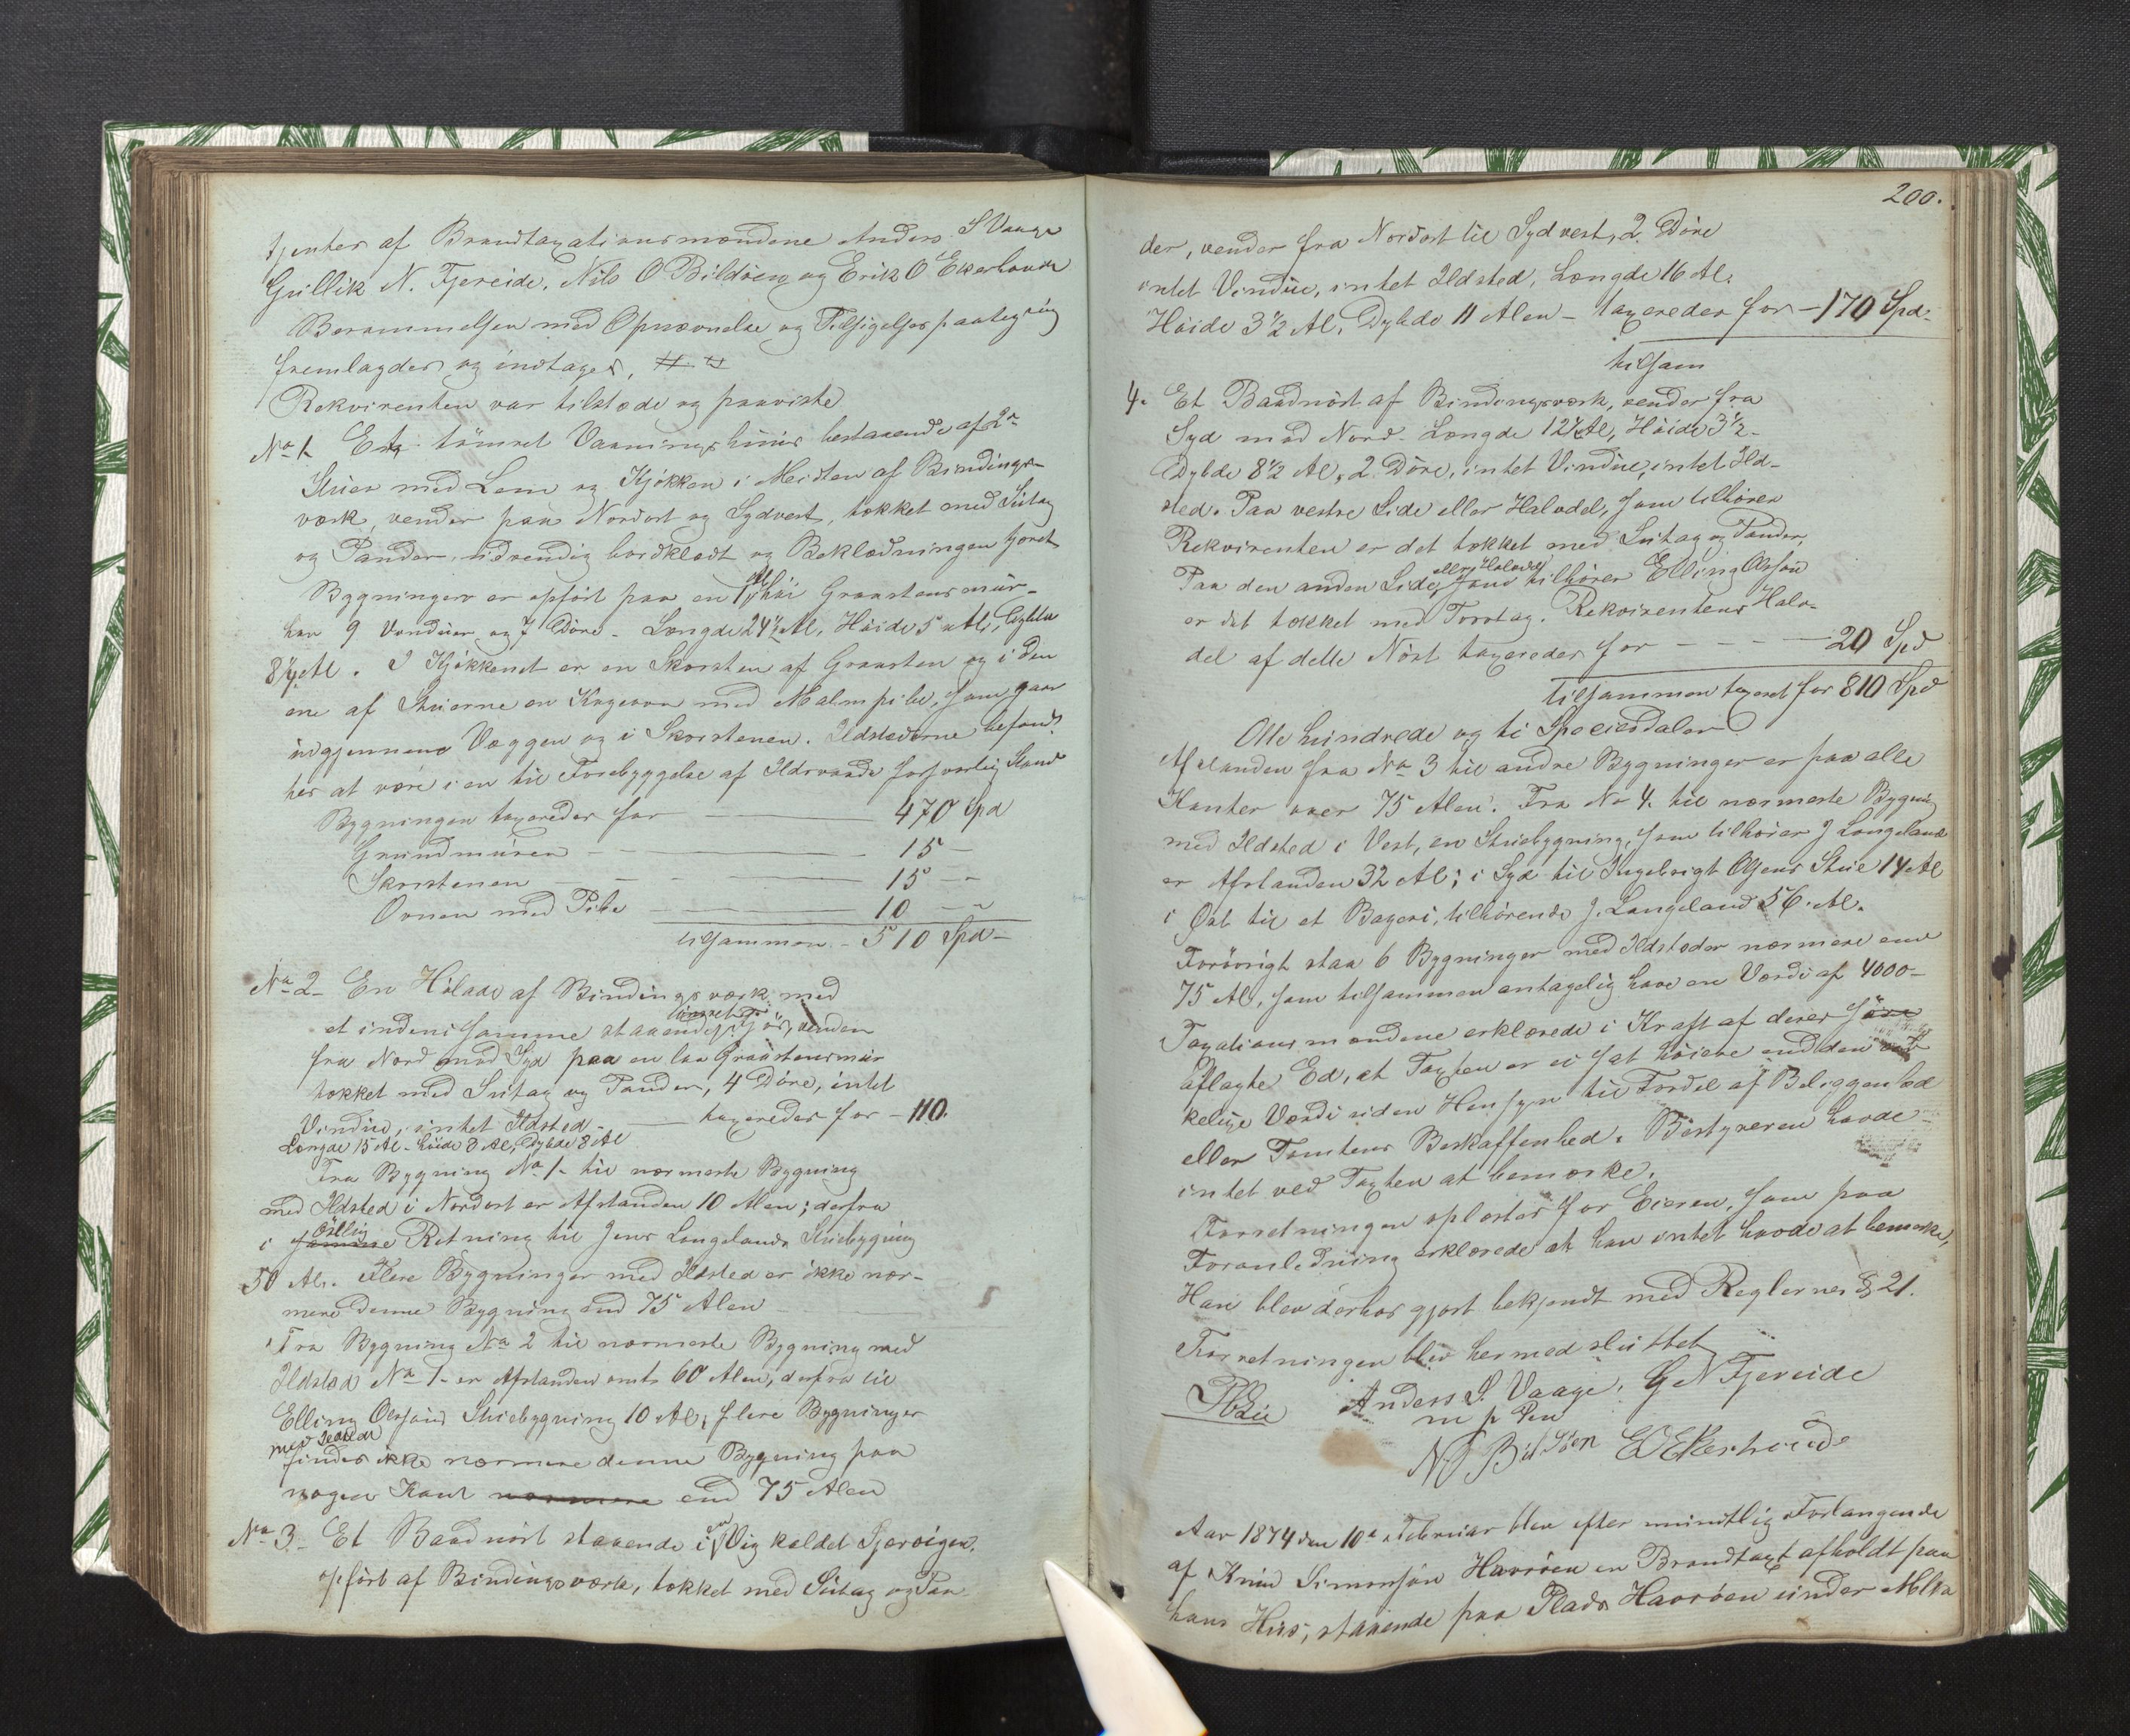 tjenter af Brandtaxationsmændene Anders S Vaage
Gullik N. Fjereide, Nils O Bildöen og Erik O Ekerhovde
Berammelsen med Opnævnelse og Tilsigelsespaategning
fremlagdes og indtages,
Rekvirenten var tilstede og paaviste
No 1. Et tömret Vaaningshuus bestaaende af 2de
Stuer med Lem og Kjökken i Midten af Bindings-
værk, vender paa Nordost og Sydvest, tækket med Sutag
og Pander, udvendig bordklædt og Beklædningen
Bygningen er opfört paa en 1 Al höi Graastensmur-
har 9 Vinduer og 7 Döre - Længde 24½ Al, Höide 5 Al, Dybde
8¼ Al. I Kjökkenet er en Skorsten af Graasten og i den
ene af Stuerne en Kogeovn med Malmpibe, som gaar
udgjennem Væggen og i Skorstenen. Ildstederne befand-
tes at være i en til Forebyggelse af Ildsvaade forsvarlig Stand
Bygningen taxeredes for 470 Spd
Grundmuren 15 -
Skorstenen 15 -
Ovnen med Pibe 10 -
tilsammen - 510 Spd -
No 2 - En Hölade af Bindingsværk med
et indeni samme staaende tömret Fjös, vender
fra Nord mod Syd paa en lav Graastensmur
tækket med Sutag og Pander, 4 Döre, intet
Vindue, intet Ildsted - taxeredes for - 110.
Længde 15 Al - höide 3 Al, Dybde 8 Al
Fra Bygning No 1 - til nærmeste Bygning
med Ildsted i Nordost er Afstanden 10 Alen; derfra
i samme östlig Retning til Jens Longelands Stuebygning
50 Al. Flere Bygninger med Ildsted er ikke nær-
mere denne Bygning end 75 Alen
Fra Bygning No 2 til nærmeste Bygning med
Ildsted No 1 - er Afstanden omtr 60 Alen, derfra til
Elling Olssöns Stuebygning 10 Al, flere Bygninger
med Ildsteder
findes ikke nærmere denne Bygning paa
nogen Kant nærmere end 75 Alen
No 3 - Et Baadnöst staaende i en Vig kaldet
opfört af Bindingsværk, tækket med Sutag og Pan
200.
der, vender fra Nordost til Sydvest, 2 Döre
intet Vindue, intet Ildsted, Længde 16 Al.
Höide 3½ Al, Dybde 11 Alen - taxeredes for - 170 Spd.
tilsam
4. Et Baadnöst af Bindingsværk, vender fra
Syd mod Nord - Længde 12½ Al, Höide 3½ -
Dybde 8½ Al, 2 Döre, intet Vindue, intet Ild-
sted. Paa vestre Side eller Halvdel, som tilhörer
Rekvirenten er det tækket med Sutag og Pander,
Paa den anden Side eller Halvdel, som tilhörer Elling Olssön
er det tækket med Torvtag. Rekvirentens Halv-
del af dette Nöst taxeredes for - - - 20 Spd
tilsammen taxeret for 810 Spd
Otte hundrede og ti Speciesdaler
Afstanden fra No 3 til andre Bygninger er paa alle
Kanter over 75 Alen. Fra No 4. til nærmeste Bygning
med Ildsted i Vest, en Stuebygning, som tilhörer J Longeland
er Afstanden 32 Al; i Syd til Ingebrigt Olsens Stue 14 Al
i Öst til et Bageri, tilhörende J. Langeland 56. Al.
Forövrigt staa 6 Bygninger med Ildsteder nærmere end
75 Al, som tilsammen antagelig have en Værdi af 4000 -
Taxationsmændene erklærede i Kraft af deres
aflagte Ed, at Taxten er ei sat höiere end den
kelige Værdi uden Hensyn til Fordel af Beliggenhed
eller Tomtens Beskaffenhed. Bestyreren havde
intet ved Taxten at bemærke.
Forretningen oplæstes for Eieren, som paa
Foranledning erklærede at han intet havde at bemærke,
Han blev derhos gjort bekjendt med Reglernes § 21.
Forretningen blev hermed sluttet
Anders S. Vaage. G N Fjereide
m p Pen
N O Bildöen E O Ekerhovde
Aar 1874 den 10de Februar blev efter mundtlig Forlangende
af Knud Simonsön Havröen en Brandtaxt afholdt paa
hans Hus, staaende paa Plads Havröen under